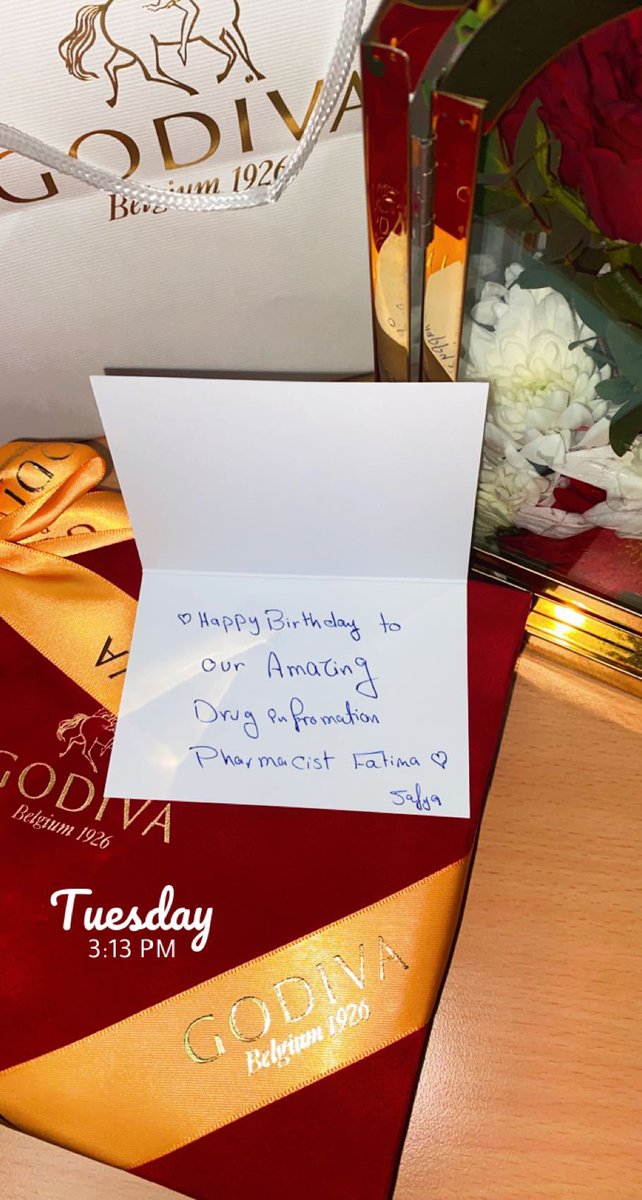 GODIVA
Belgium 1926
♡ Happy Birthday to
our Amazing
Drug infromation
Pharmacist Fatima ♡
Safya
GODIVA
Belgium 1926
Tuesday
3:13 PM
GODIVA
Belgium 1926